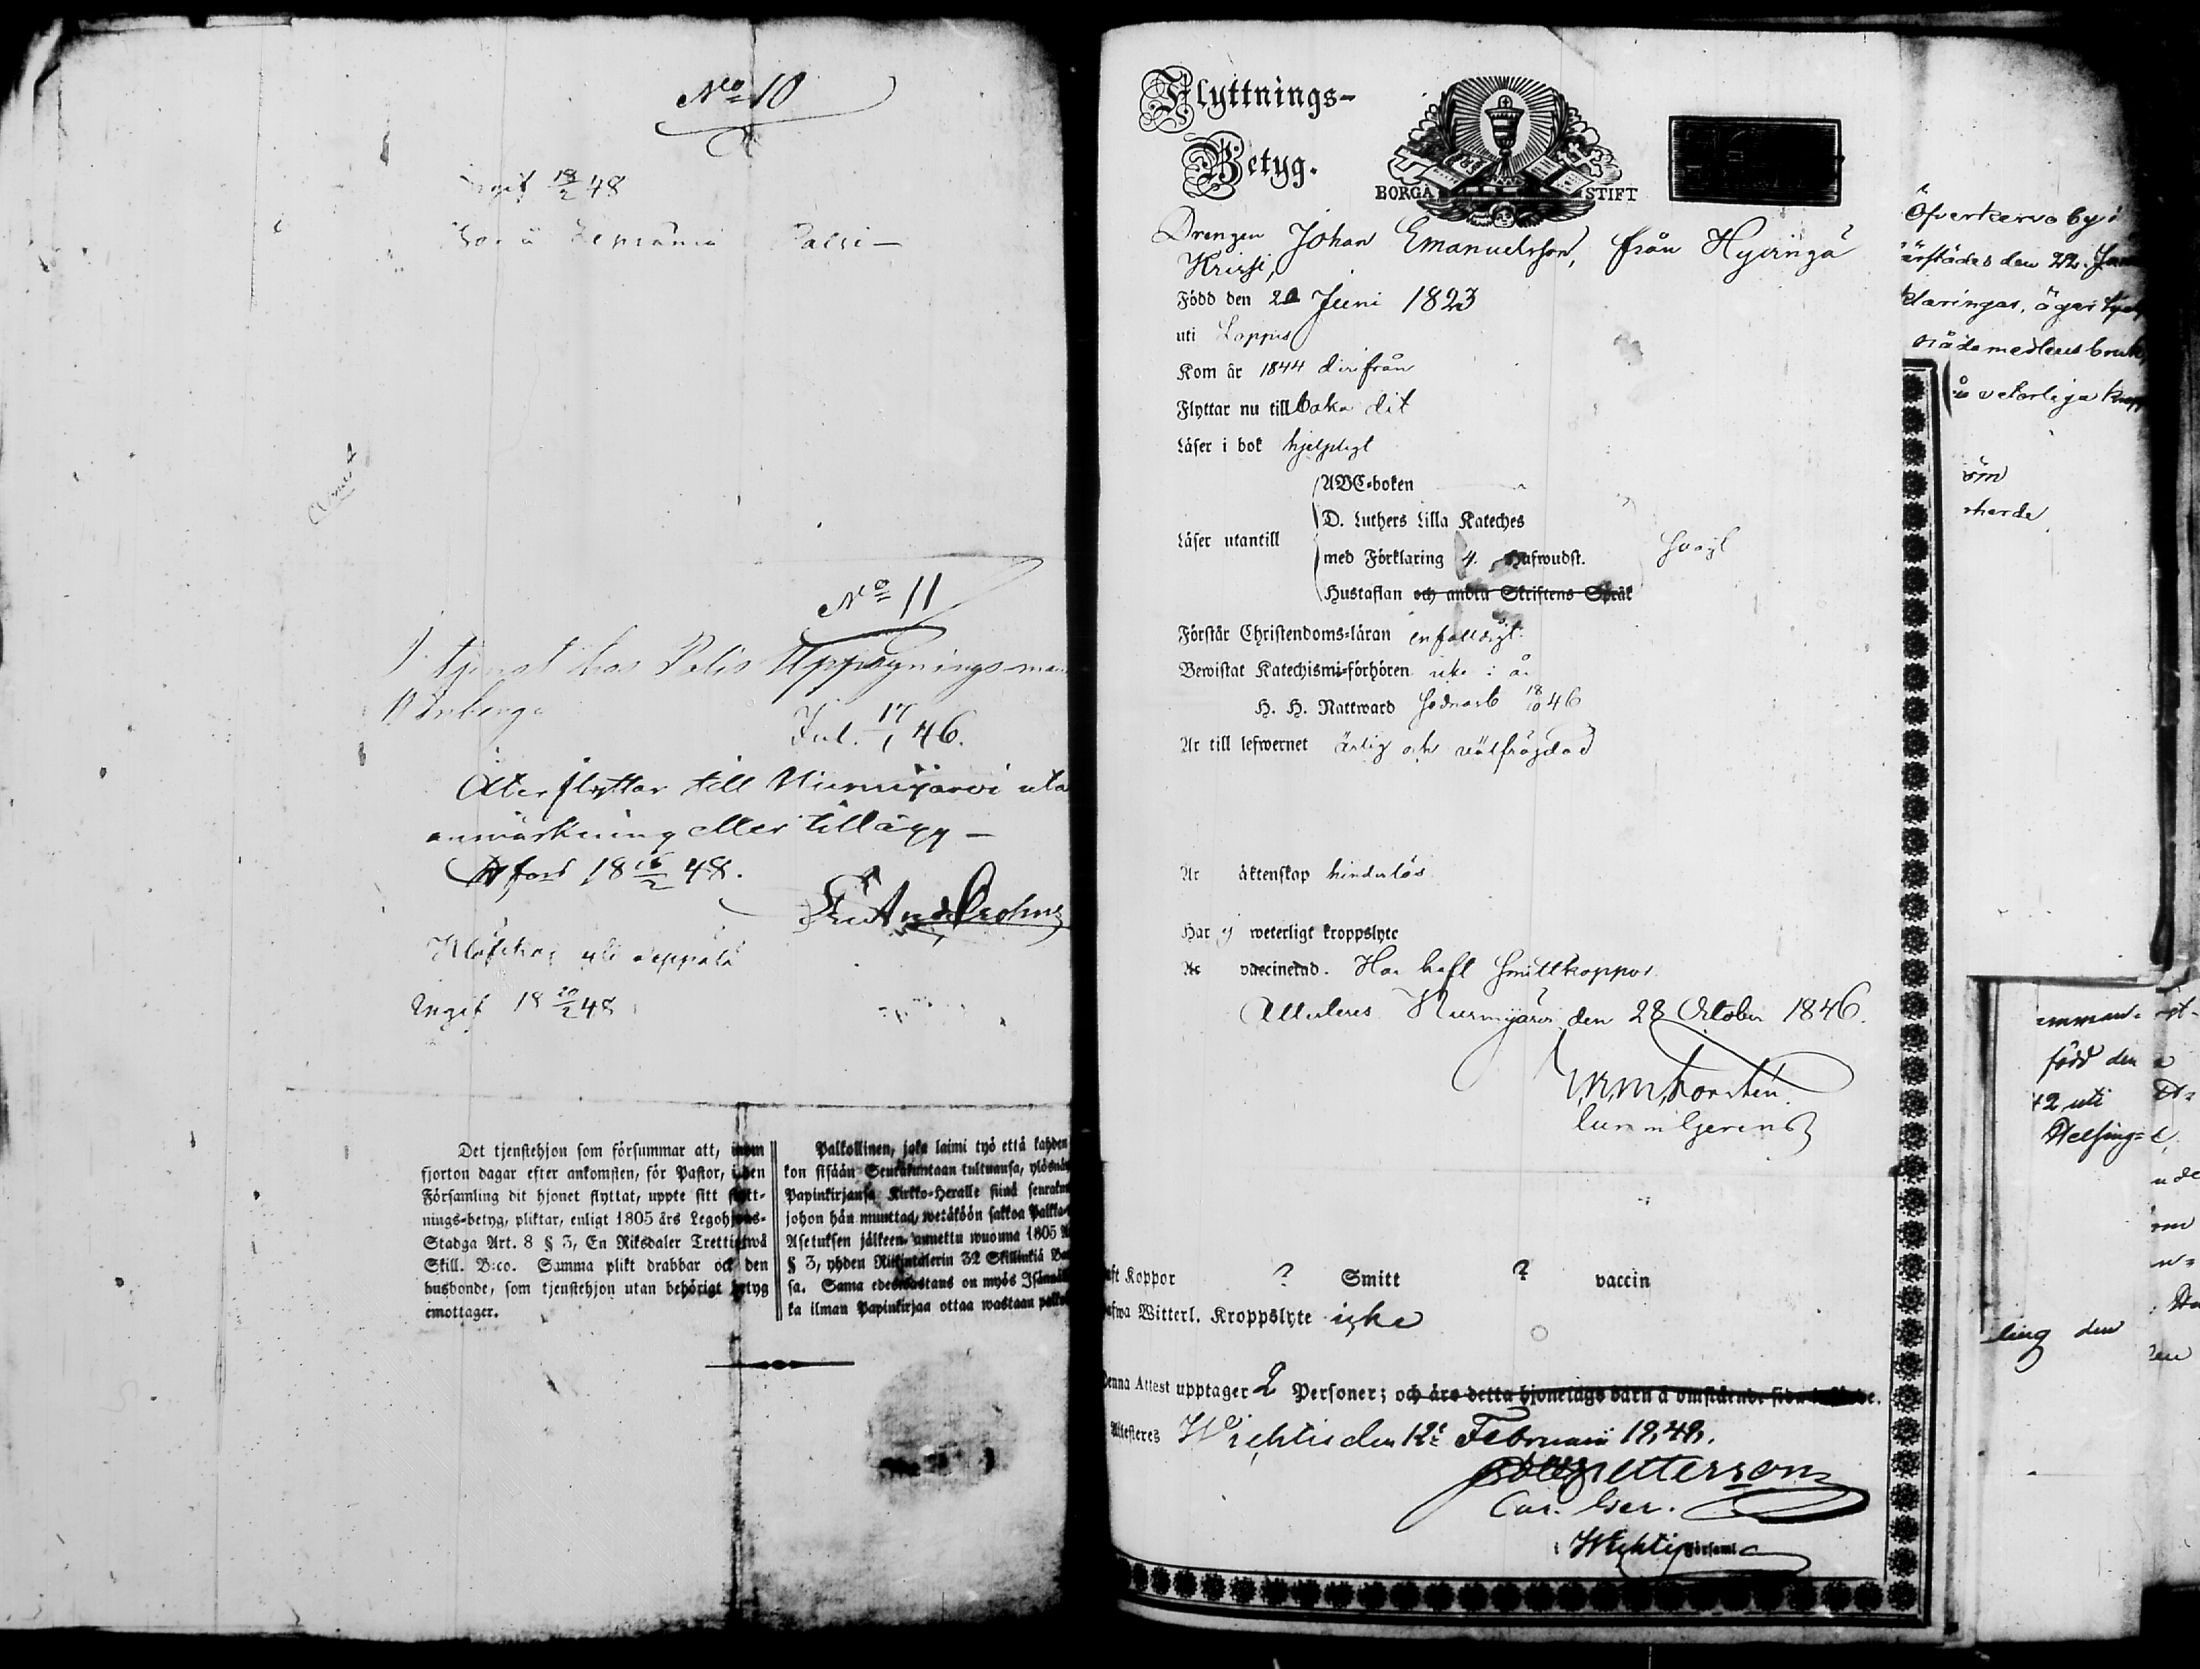 No 10
Ingif 18/2 48
No 11
I tjenst hos Polis Uppsyningsman
Inl. 17/1 46.
Återflyttar till Nurmijärvi uta
anmärkning eller tillägg —
H:fors 18 16/2 48.
Ingif 18 20/2 48
Det tjenstehjon som försummar att, inom
fjorton dagar efter ankomsten, för Pastor, i den
Församling dit hjonet flyttat, uppte sitt flytt-
nings-betyg, pliktar, enligt 1805 års Legohjons-
Stadga Art. 8 § 3, En Riksdaler Trettiotwå
Skill. B:co. Samma plikt drabbar ock den
husbonde, som tjenstehjon utan behörigt betyg
emottager.
Palkollinen, joka laimi työ että kahden
kon sisään Seurakuntaan tultuansa, ylösnäy
Papinkirjansa Kirkko-Heralle siinä seurakun
johon hän muuttaa, wetäköön sakkoa Palkka-
Asetuksen jälkeen annettu wuonna 1805 A
§ 3, yhden Riikintalerin 32 Skillinkiä Ban
sa. Sama edeswastaus on myös Isännäll
ka ilman Papinkirjaa ottaa wastaan palko
Flyttnings-
Betyg.
BORGÅ STIFT
Drengen Johan Emanuelsson, från Hyvinge
Krissi,
Född den 20 Juni 1823
uti Loppis
Kom år 1844 därifrån
Flyttar nu till baka dit
Läser i bok hjelpligt
ABC-boken
D. Luthers Lilla Kateches
Läser utantill
med Förklaring 4. Hufwudst. svagt
Hustaflan och andra Skriftens Språk
Förstår Christendoms-läran enfaldigt
Bewistat Katechismi-förhören icke i år
H. H. Nattward sednast 18/10 46
Är till lefwernet ärlig och välfrägdad
Är äktenskap hinderlös
Har ej weterligt kroppslyte
Är vaccinerad. Har haft smittkoppor.
Attesteras Nurmijärvi den 28 October 1846.
Haft Koppor ? Smitt ? vaccin
Hafwa Witterl. Kroppslyte icke
Denna Attest upptager 2 Personer; och äro detta hjonelags barn å omstående sida
Attesteres Wichtis den 12e Februarii 1848.
Petterson
Cur. Ger.
i Wichtis Församl.
Öfverkervo by i
därstädes den 22. Jan
klaringar, äger
nådemedlens bruk
född den
42 uti
Helsing-
ling den